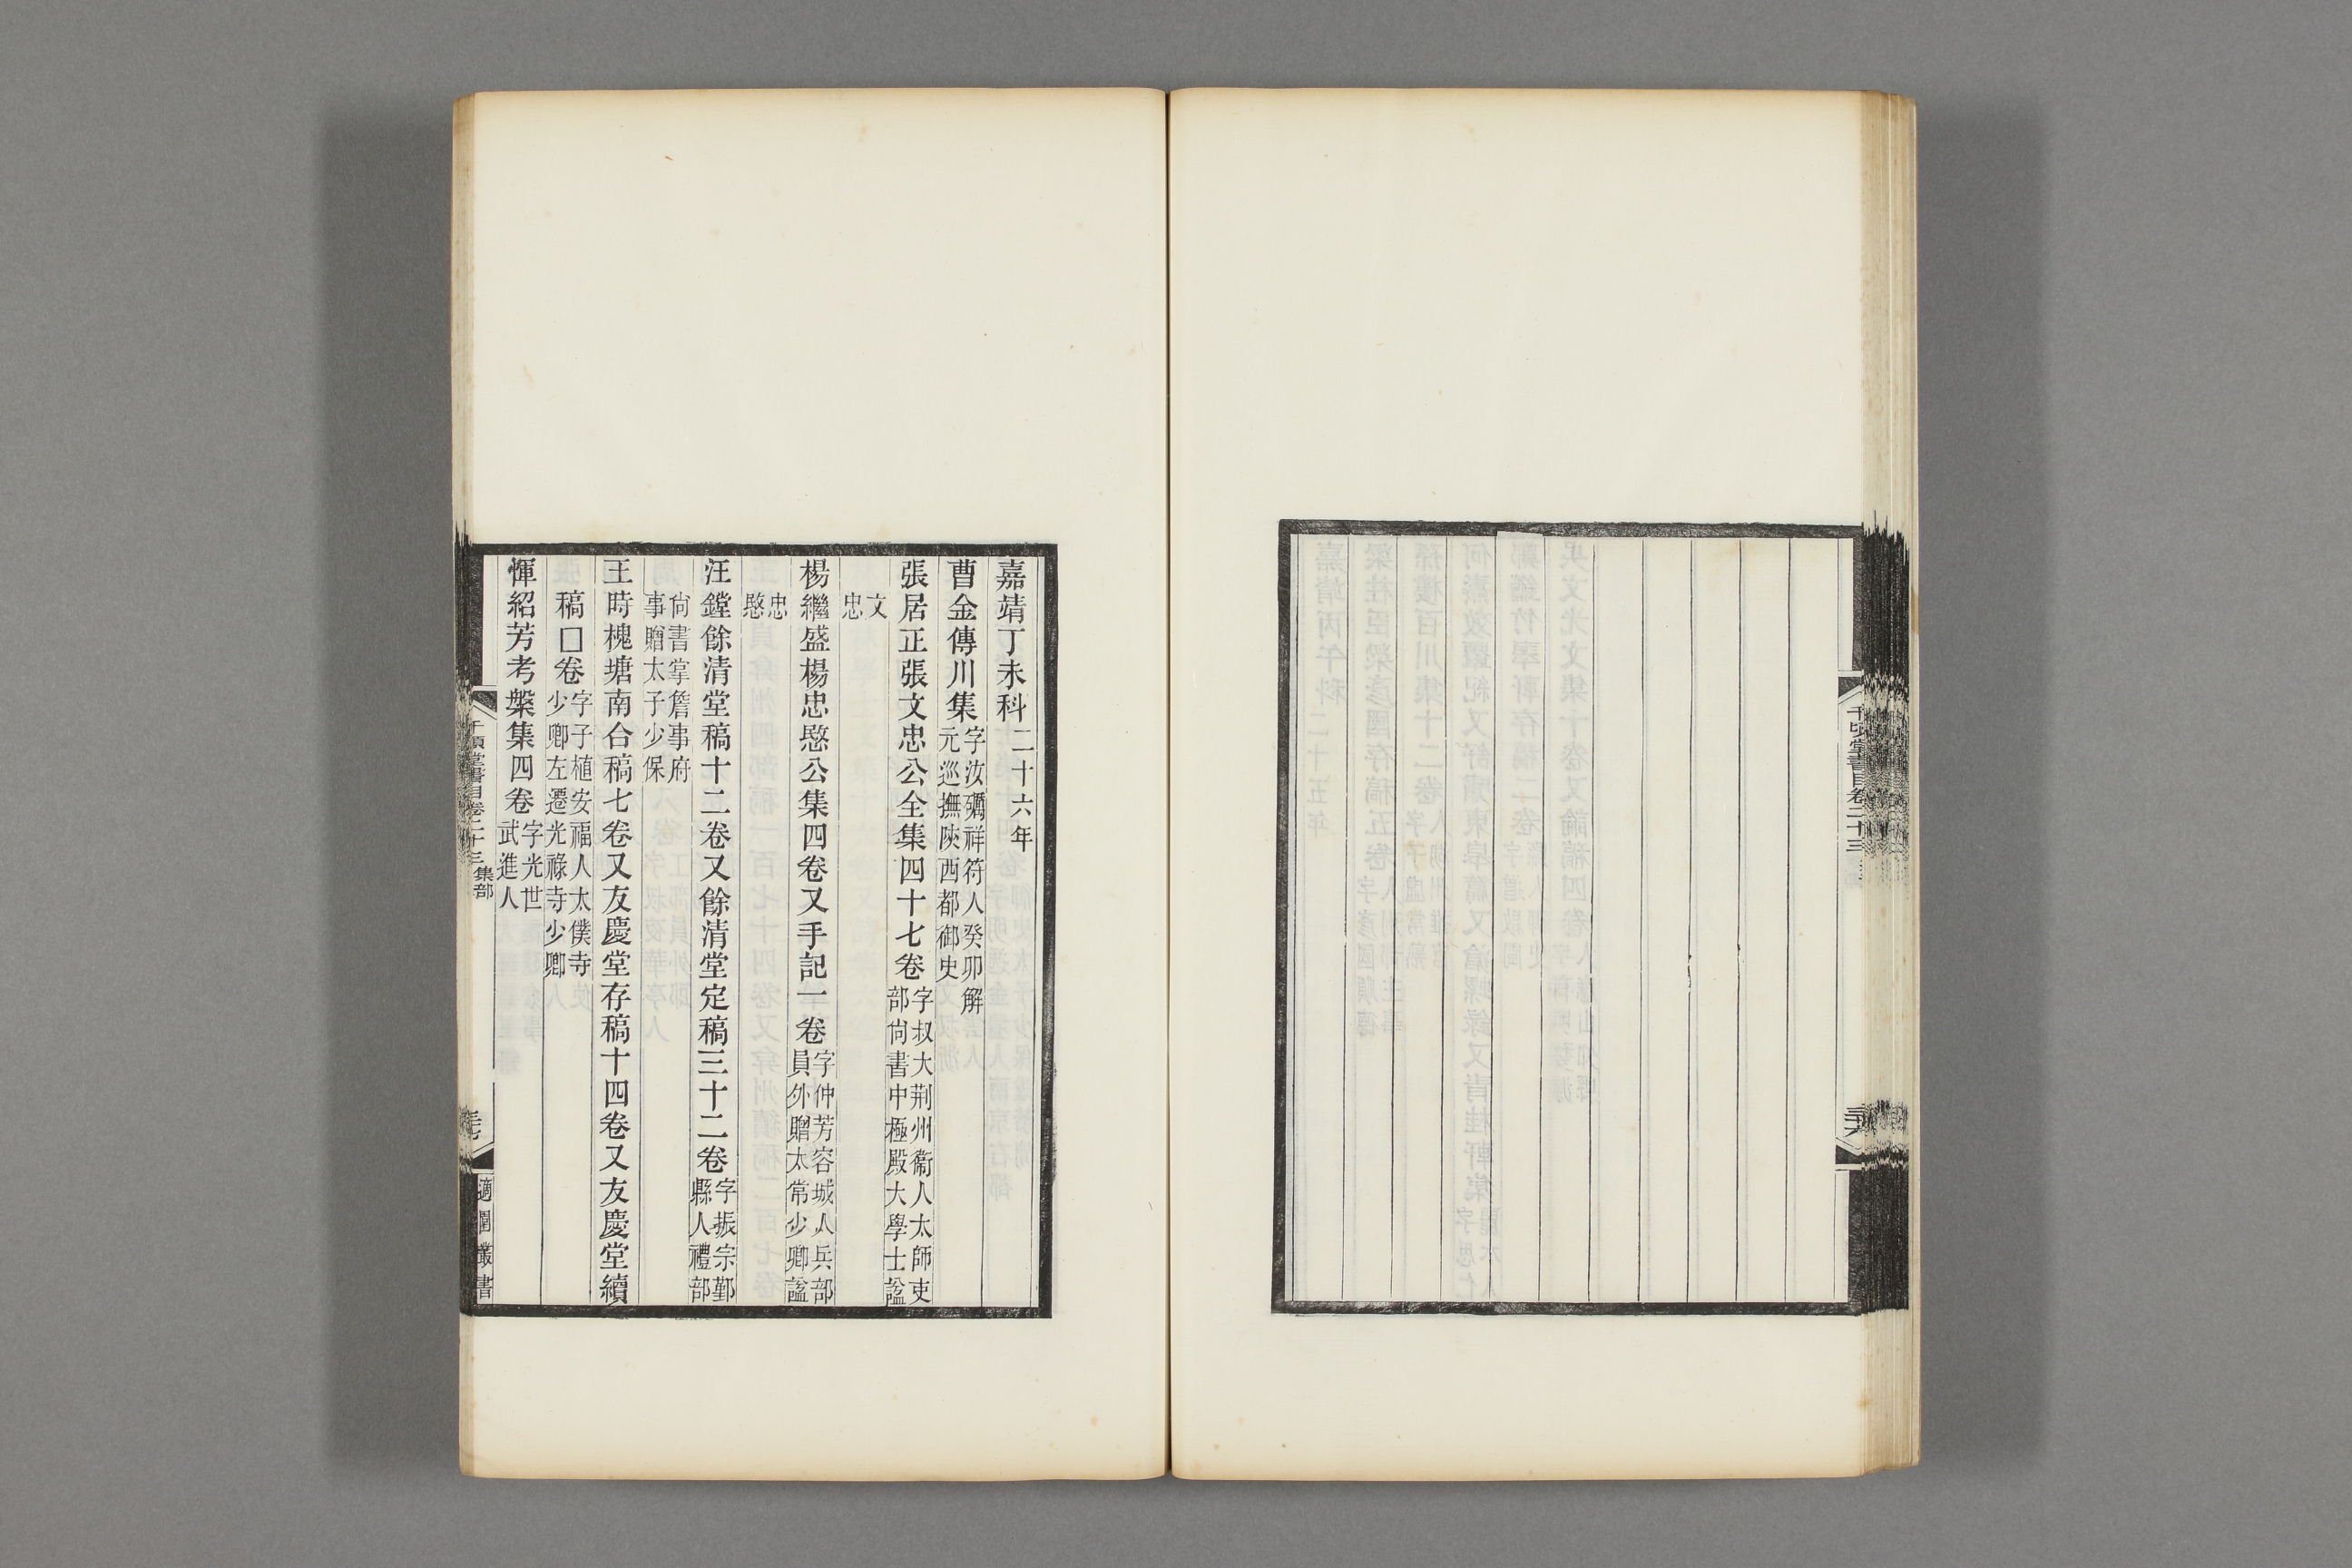 千頃堂書目卷二十三
嘉靖丁未科二十六年
曹金傳川集字汝礪祥符人癸卯解元巡撫陝西都御史
張居正張文忠公全集四十七卷字叔大荆州衞人太師吏部尚書中極殿大學士諡
文忠
楊繼盛楊忠愍公集四卷又手記一卷字仲芳容城人兵部員外贈太常少卿諡
忠愍
汪鏜餘清堂稿十二卷又餘清堂定稿三十二卷字振宗鄞縣人禮部
尚書掌詹事府事贈太子少保
王時槐塘南合稿七卷又友慶堂存稿十四卷又友慶堂續
稿□卷字子植安福人太僕寺少卿左遷光祿寺少卿
惲紹芳考槃集四卷字光世武進人
千頃堂書目卷二十三 集部
適園叢書